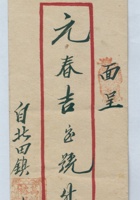 面呈
元春吉宝號
自北田鎮